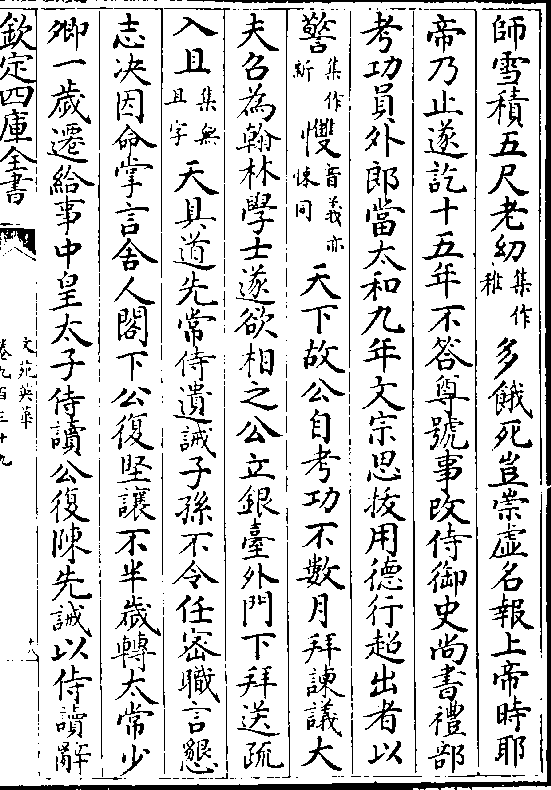 師雪積五尺老幼集作稚多餓死豈崇虛名報上帝時耶
帝乃止遂訖十五年不答尊號事改侍御史尚書禮部
考功員外郎當太和九年文宗思拔用德行超出者以
警集作斬㦬音義亦悚同天下故公自考功不數月拜諫議大
夫召為翰林學士遂欲相之公立銀臺外門下拜送疏
入且集無且字天具道先常侍遺誡子孫不令任宻職言懇
志决因命掌言舍人閣下公復堅讓不半歲轉太常少
卿一歲遷給事中皇太子侍讀公復陳先誡以侍讀辭
欽定四庫全書
文苑英華
卷九百三十九
十八